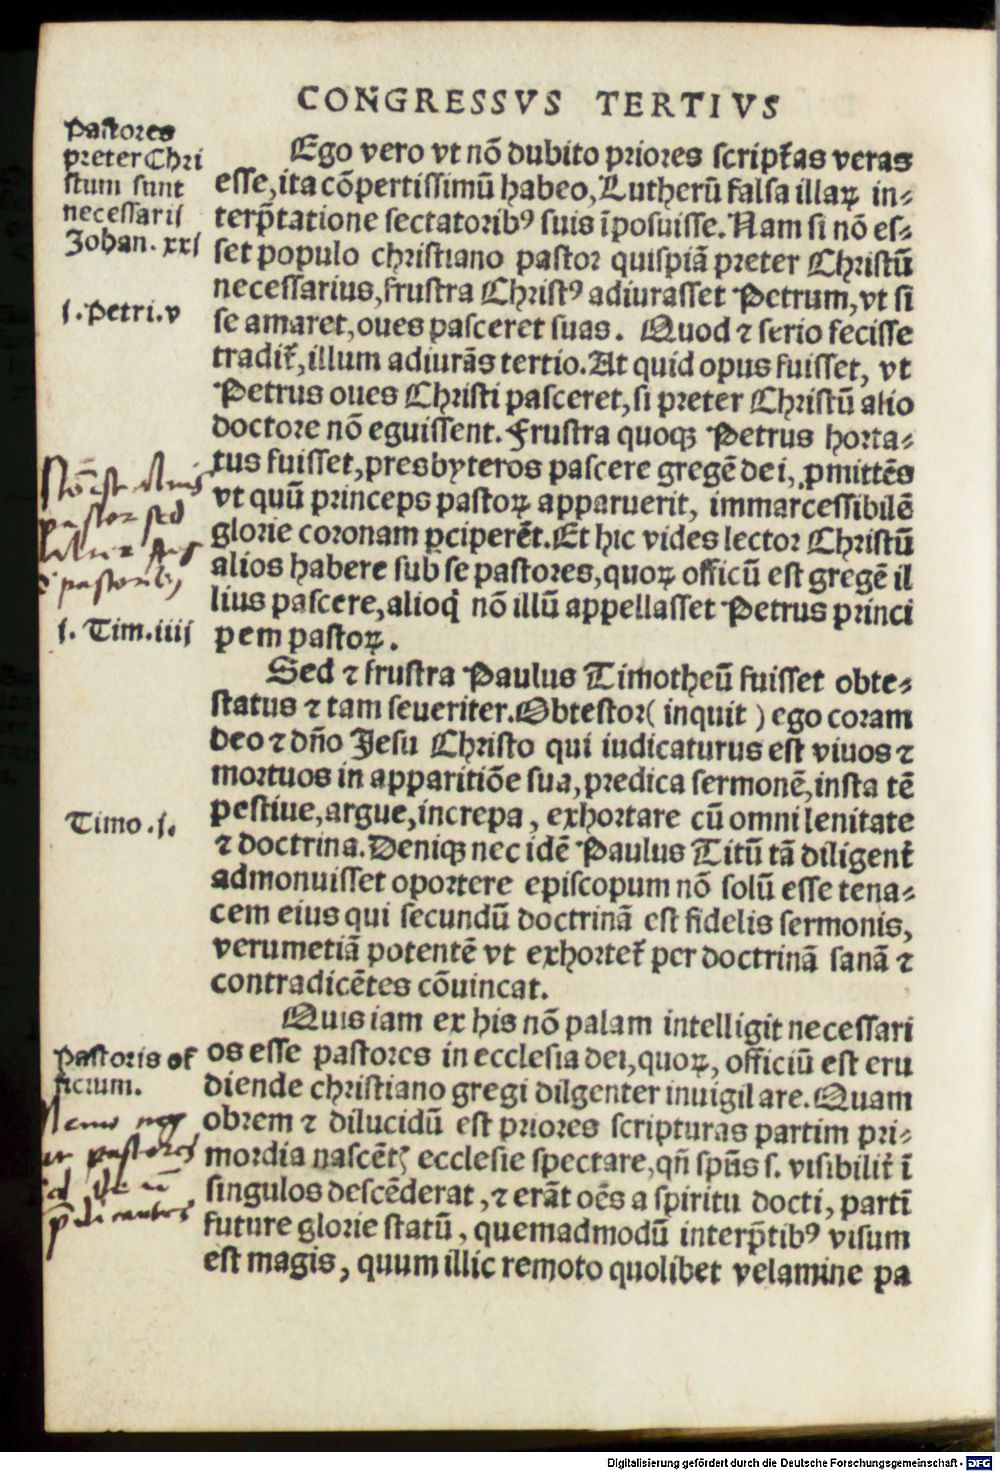 CONGRESSVS TERTIVS
Pastores
preter Chri
stum sunt
necessarij
Johan. xxj
j. Petri. v
j. Tim. iiij
Timo. j.
Pastoris of
ficium.
Ego vero vt nō dubito priores scriptꝛas veras
esse, ita cōpertissimū habeo, Lutherū falsa illaꝝ in-
terp̄tatione sectatoribꝰ suis īposuisse. Nam si nō es-
set populo christiano pastor quispiā preter Christū
necessarius, frustra Christꝰ adiurasset Petrum, vt si
se amaret, oues pasceret suas. Quod ⁊ serio fecisse
tradiť, illum adiurās tertio. At quid opus fuisset, vt
Petrus oues Christi pasceret, si preter Christū alio
doctore nō eguissent. Frustra quoqꝫ Petrus horta-
tus fuisset, presbyteros pascere gregē dei, ꝓmittēs
vt quū princeps pastoꝝ apparuerit, immarcessibilē
glorie coronam ꝑciperēt. Et hic vides lector Christū
alios habere sub se pastores, quoꝝ officū est gregē il
lius pascere, alioq̇ nō illū appellasset Petrus princi
pem pastoꝝ.
Sed ⁊ frustra Paulus Timotheū fuisset obte-
status ⁊ tam seueriter. Obtestor ( inquit ) ego coram
deo ⁊ dño Jesu Christo qui iudicaturus est viuos ⁊
mortuos in apparitiōe sua, predica sermonē, insta tē
pestiue, argue, increpa, exhortare cū omni lenitate
⁊ doctrina. Deniqꝫ nec idē Paulus Titū tā diligenť
admonuisset oportere episcopum nō solū esse tena-
cem eius qui secundū doctrinā est fidelis sermonis,
verumetiā potentē vt exhorteť per doctrinā sanā ⁊
contradicētes cōuincat.
Quis iam ex his nō palam intelligit necessari
os esse pastores in ecclesia dei, quoꝝ, officiū est eru
diende christiano gregi dilgenter inuigilare. Quam
obrem ⁊ dilucidū est priores scripturas partim pri-
mordia nascētꝭ ecclesie spectare, qñ spūs s. visibiliť ī
singulos descēderat, ⁊ erāt oēs a spiritu docti, partī
future glorie statū, quemadmodū interp̄tibꝰ visum
est magis, quum illic remoto quolibet velamine pa
Digitalisierung gefördert durch die Deutsche Forschungsgemeinschaft - DFG